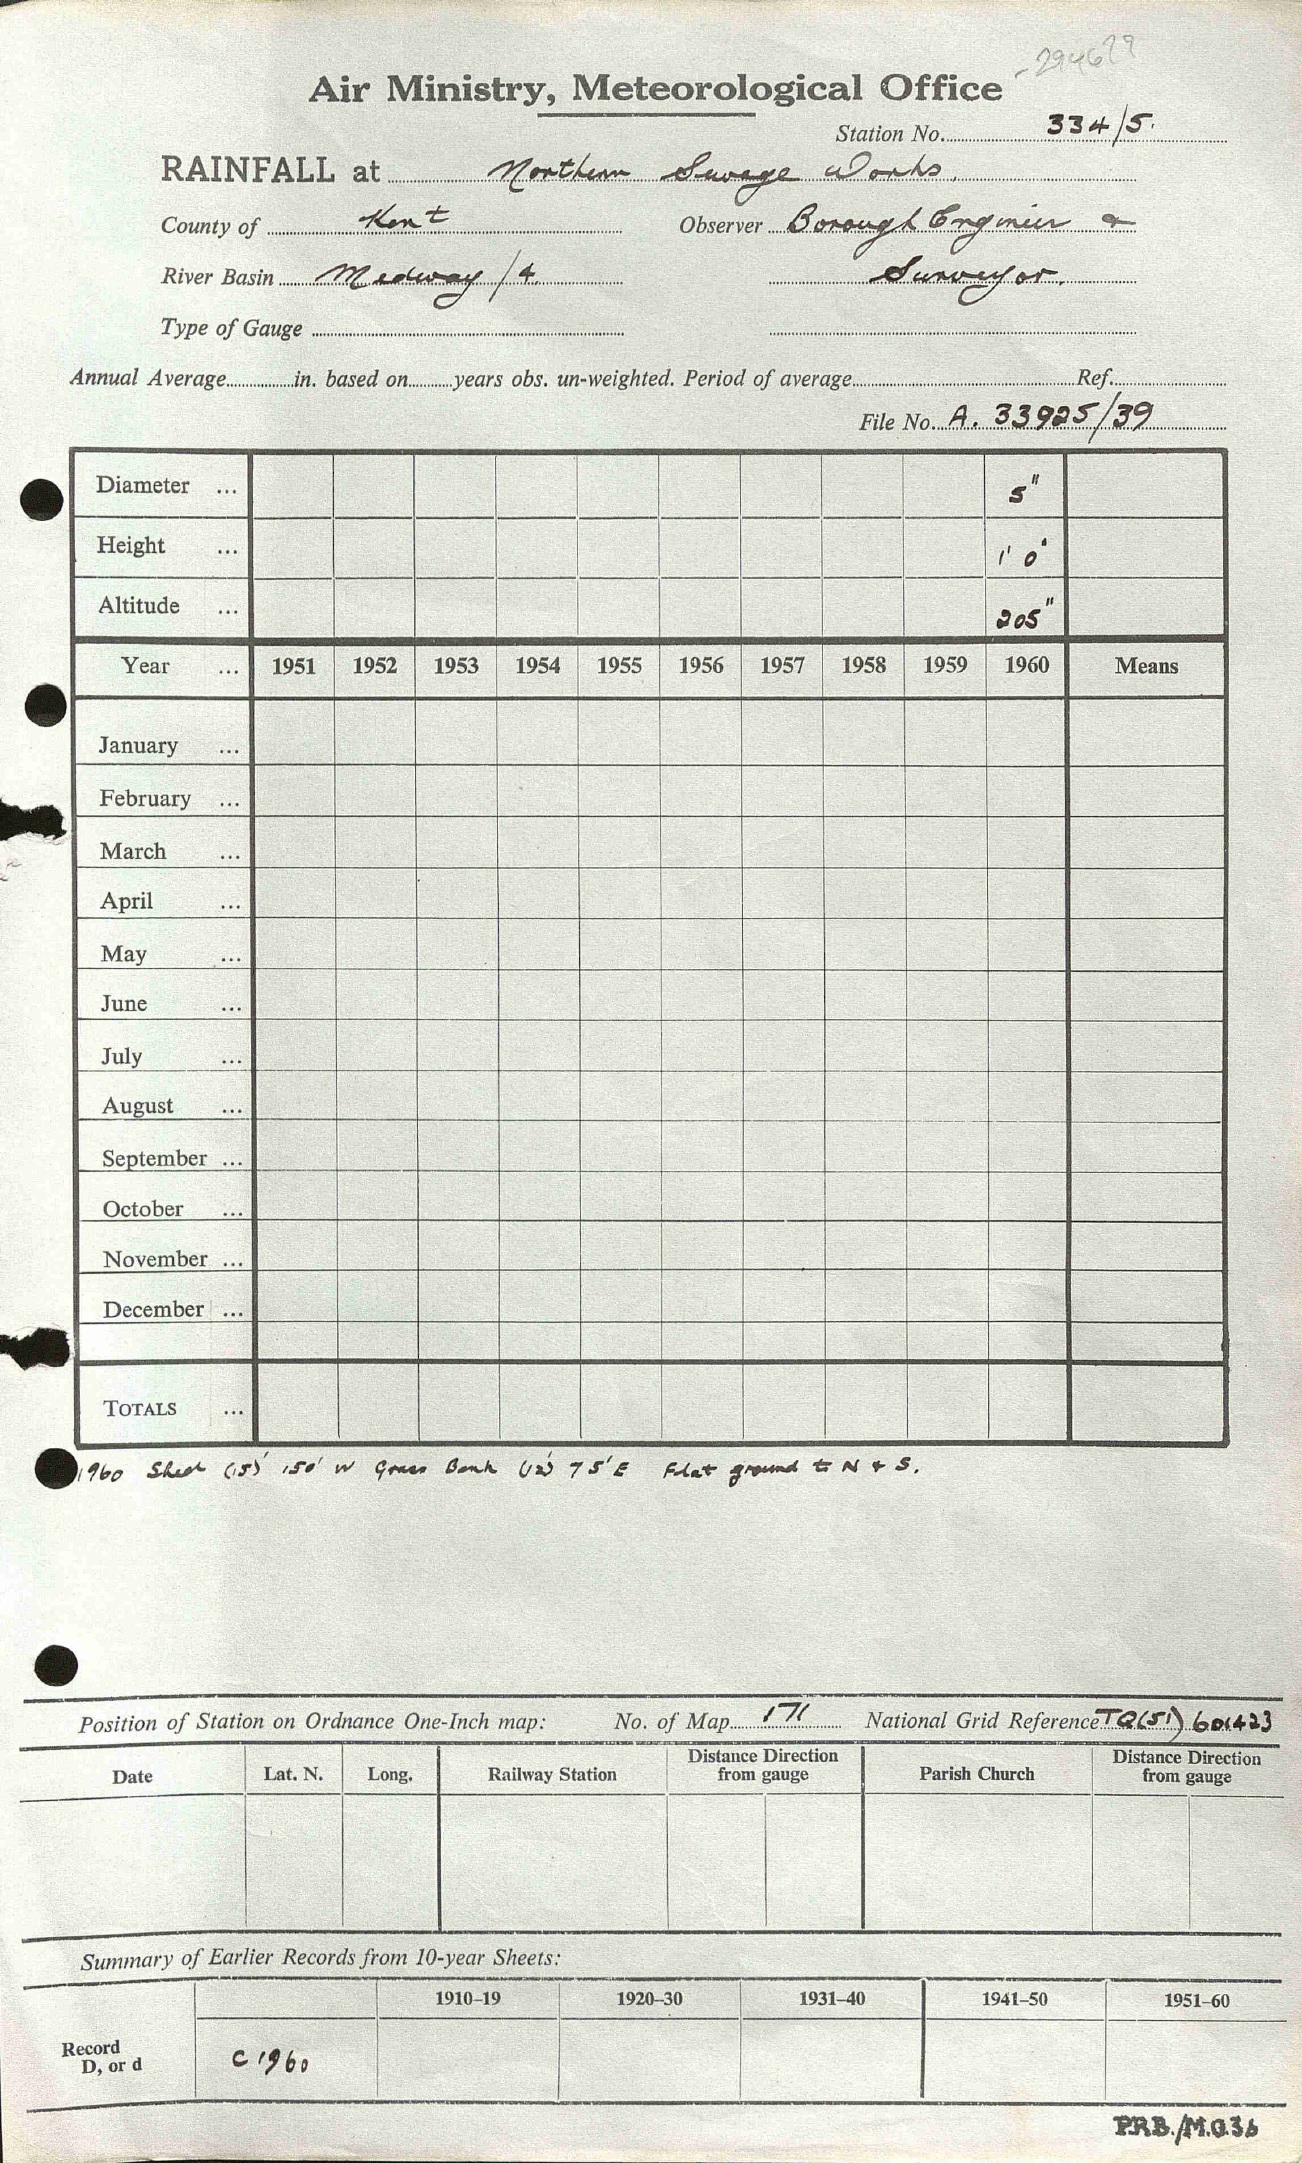 Air Ministry, Meteorological Office
Station No. 334/5.
RAINFALL at Northern Sewage Works.
County of Kent Observer Borough Engineer &
River Basin Medway /4. Surveyor.
Type of Gauge
Annual Average in. based on years obs. un-weighted. Period of average Ref.
File No. A. 33925/39
Diameter ... 5"
Height ... 1' 0"
Altitude ... 205"
Year ... 1951 1952 1953 1954 1955 1956 1957 1958 1959 1960 Means
January ...
February ...
March ...
April ...
May ...
June ...
July ...
August ...
September ...
October ...
November ...
December ...
TOTALS ...
1960 Shed (15)' 150' W Grass Bank (12') 75' E Flat ground to N & S.
Position of Station on Ordnance One-Inch map: No. of Map 171 National Grid Reference TQ(51) 601423
Date Lat. N. Long. Railway Station Distance Direction from gauge Parish Church Distance Direction from gauge
Summary of Earlier Records from 10-year Sheets:
1910–19 1920–30 1931–40 1941–50 1951–60
Record
D, or d C 1960
P.R.B./M.O.36